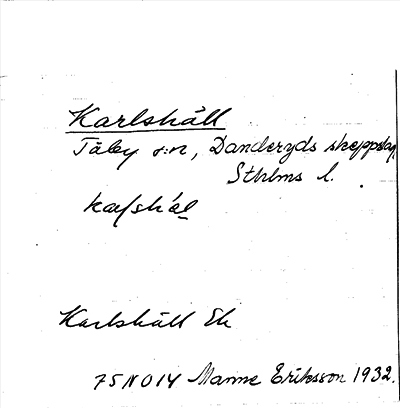 Karlshäll
Täby s:n, Danderyds skeppslag,
Sthlms l.
Karlshäll Ek
75NO14 Manne Eriksson 1932.